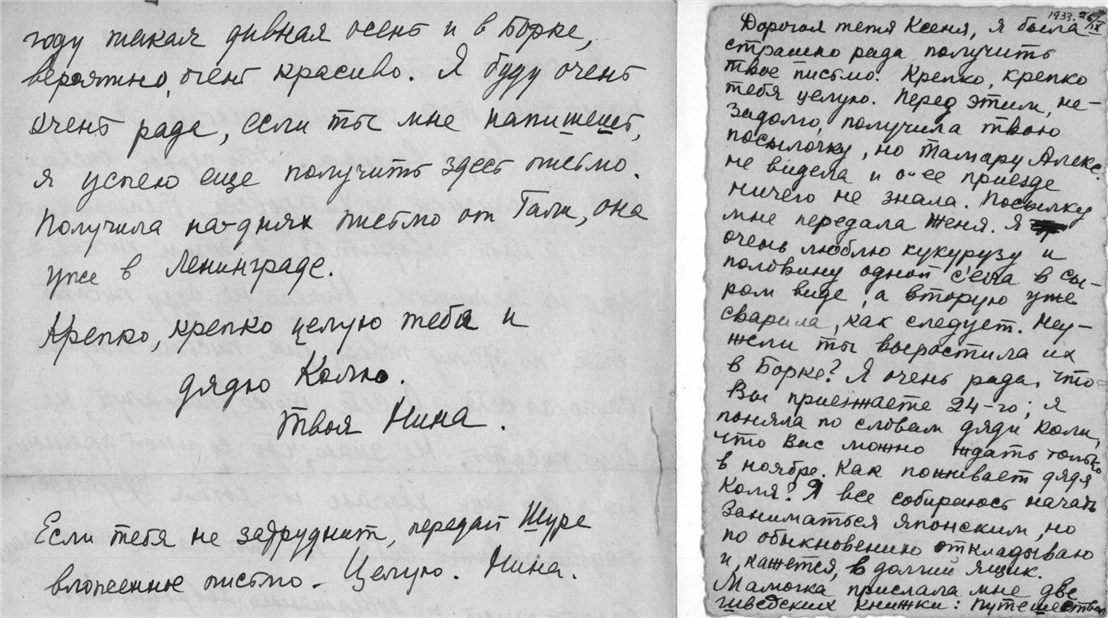 году такая дивная осень и в Борке,
вероятно, очень красиво. Я буду очень
очень рада, если ты мне напишешь,
я успею еще получить здесь письмо.
Получила на-днях письмо от Гали, она
уже в Ленинграде.
Крепко, крепко целую тебя и
дядю Колю.
Твоя Нина.
Если тебя не затруднит, передай Шуре
вложенное письмо. Целую. Нина.
1933. 26/IX
Дорогая тетя Ксеня, я была
страшно рада получить
твое письмо. Крепко, крепко
тебя целую. Перед этим, не-
задолго, получила твою
посылочку, но Тамару Алекс.
не видела и о ее приезде
ничего не знала. Посылку
мне передала Женя. Я
очень люблю кукурузу и
половину одной съела в сы-
ром виде, а вторую уже
сварила, как следует. Неу-
жели ты вырастила их
в Борке? Я очень рада, что
Вы приезжаете 24-го; я
поняла по словам дяди Коли,
что Вас можно ждать только
в ноябре. Как поживает дядя
Коля? Я все собираюсь начать
заниматься японским, но
по обыкновению откладываю
и, кажется, в долгий ящик.
Мамочка прислала мне две
шведских книжки: Путешествия